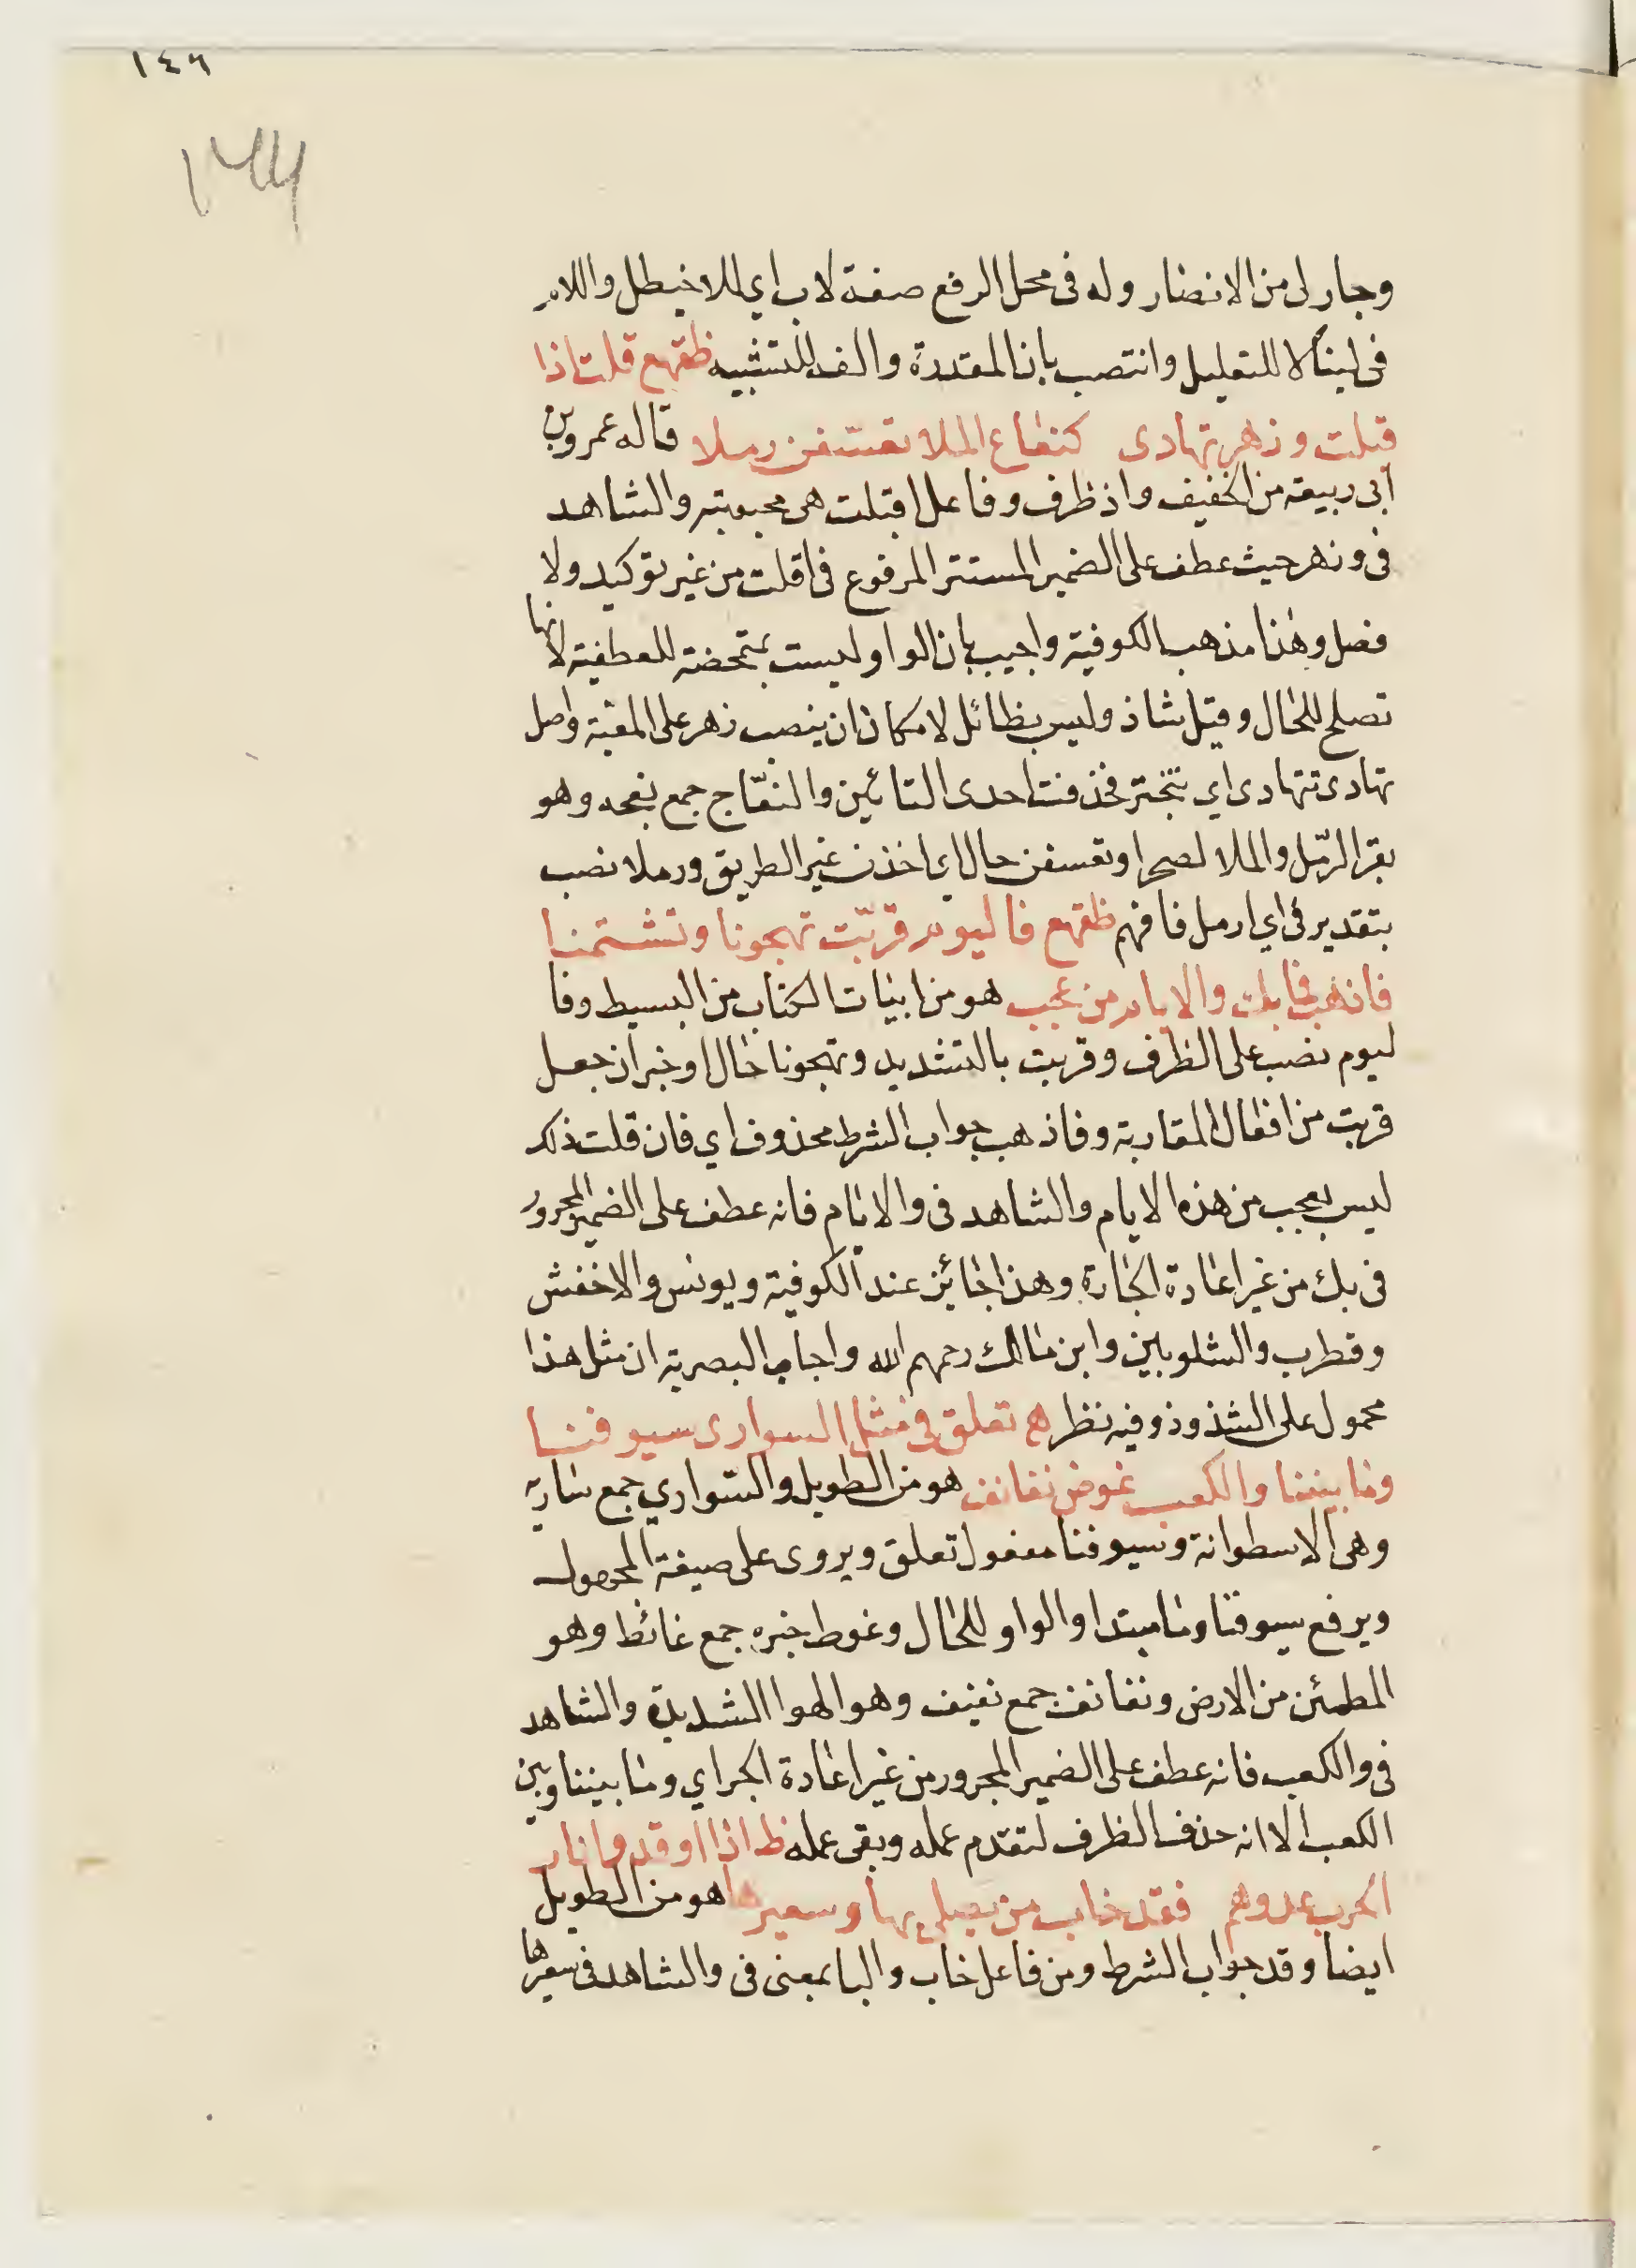 ١٤٦
١٣٤
وجار لى من الانضار وله فى محل الرفع صفة لاب اي للاخيطل واللام
فى لينالا للتعليل وانتصب بان المقدرة والفه للتثنيه ظقهع قلت اذا
قبلت وزهر تهادى كنعاع الملا تعسفن رملا قاله عمرو بن
ابى ربيعة من الخفيف واذ ظرف وفاعل اقبلت هى محبوبته والشاهد
فى وزهر حيث عطف على الضمير المستتر المرفوع فى اقلت من غير توكيد ولا
فصل وهذا مذهب الكوفية واجيب بان الواو ليست بمتمحضة للعطفية لانها
تصلح للحال وقيل شاذ وليس بظائل لامكان ان ينصب زهر على المعية واصل
تهادى تتهادى اى تتبختر فحذفت احدى التائين والنعاج جمع نعجه وهو
بقر الرمل والملا لصحرا وتعسفن حال اى اخذن غير الطريق ورملا نصب
بتقدير فى اي ارمل فافهم ظقهع فاليوم قربت تهجونا وتشتمنا
فاذهب فما بك والايام من عجب هو من ابيات الكتاب من البسيط وفا
ليوم نصب على الظرف وقربت بالتشديد وتهجونا حال او خبر ان جعل
قربت من افعال المقاربة وفاذهب جواب الشرط محذوف اي فان قلت ذلك
ليس بعجب من هذه الايام والشاهد فى والايام فانه عطف على الضمير المجرور
فى بك من غير اعادة الجارة وهذا جائز عند الكوفية ويونس والاخفش
وقطرب والشلوبين وابن مالك رحمهم الله واجاب البصرية ان مثل هذا
محمول على الشذوذ وفيه نظر هع تعلق فى مثل السوارى سيوفنا
وما بيننا والكعب غوض نفانف هو من الطويل والسواري جمع سارية
وهى الاسطوانة وسيوفنا مفعول تعلق ويروى على صيغة المجهول
ويرفع سيوفنا وما مبتدا والواو للحال وغوط خبره جمع غائط وهو
المطمئن من الارض ونفانف جمع نفنف وهو الهوا الشديدة والشاهد
فى والكعب فانه عطف على الضمير المجرور من غير اعادة الجر اي وما بيننا وبين
الكعب الا انه حذف الظرف لتقدم عمله وبقى عمله ظ اذا اوقدوا نار
الحرب عدوهم فقد خاب من يصلى بها وسعيرها هو من الطويل
ايضا وقد جواب الشرط ومن فاعل خاب والبا بمعنى فى والشاهد فى سعيرها